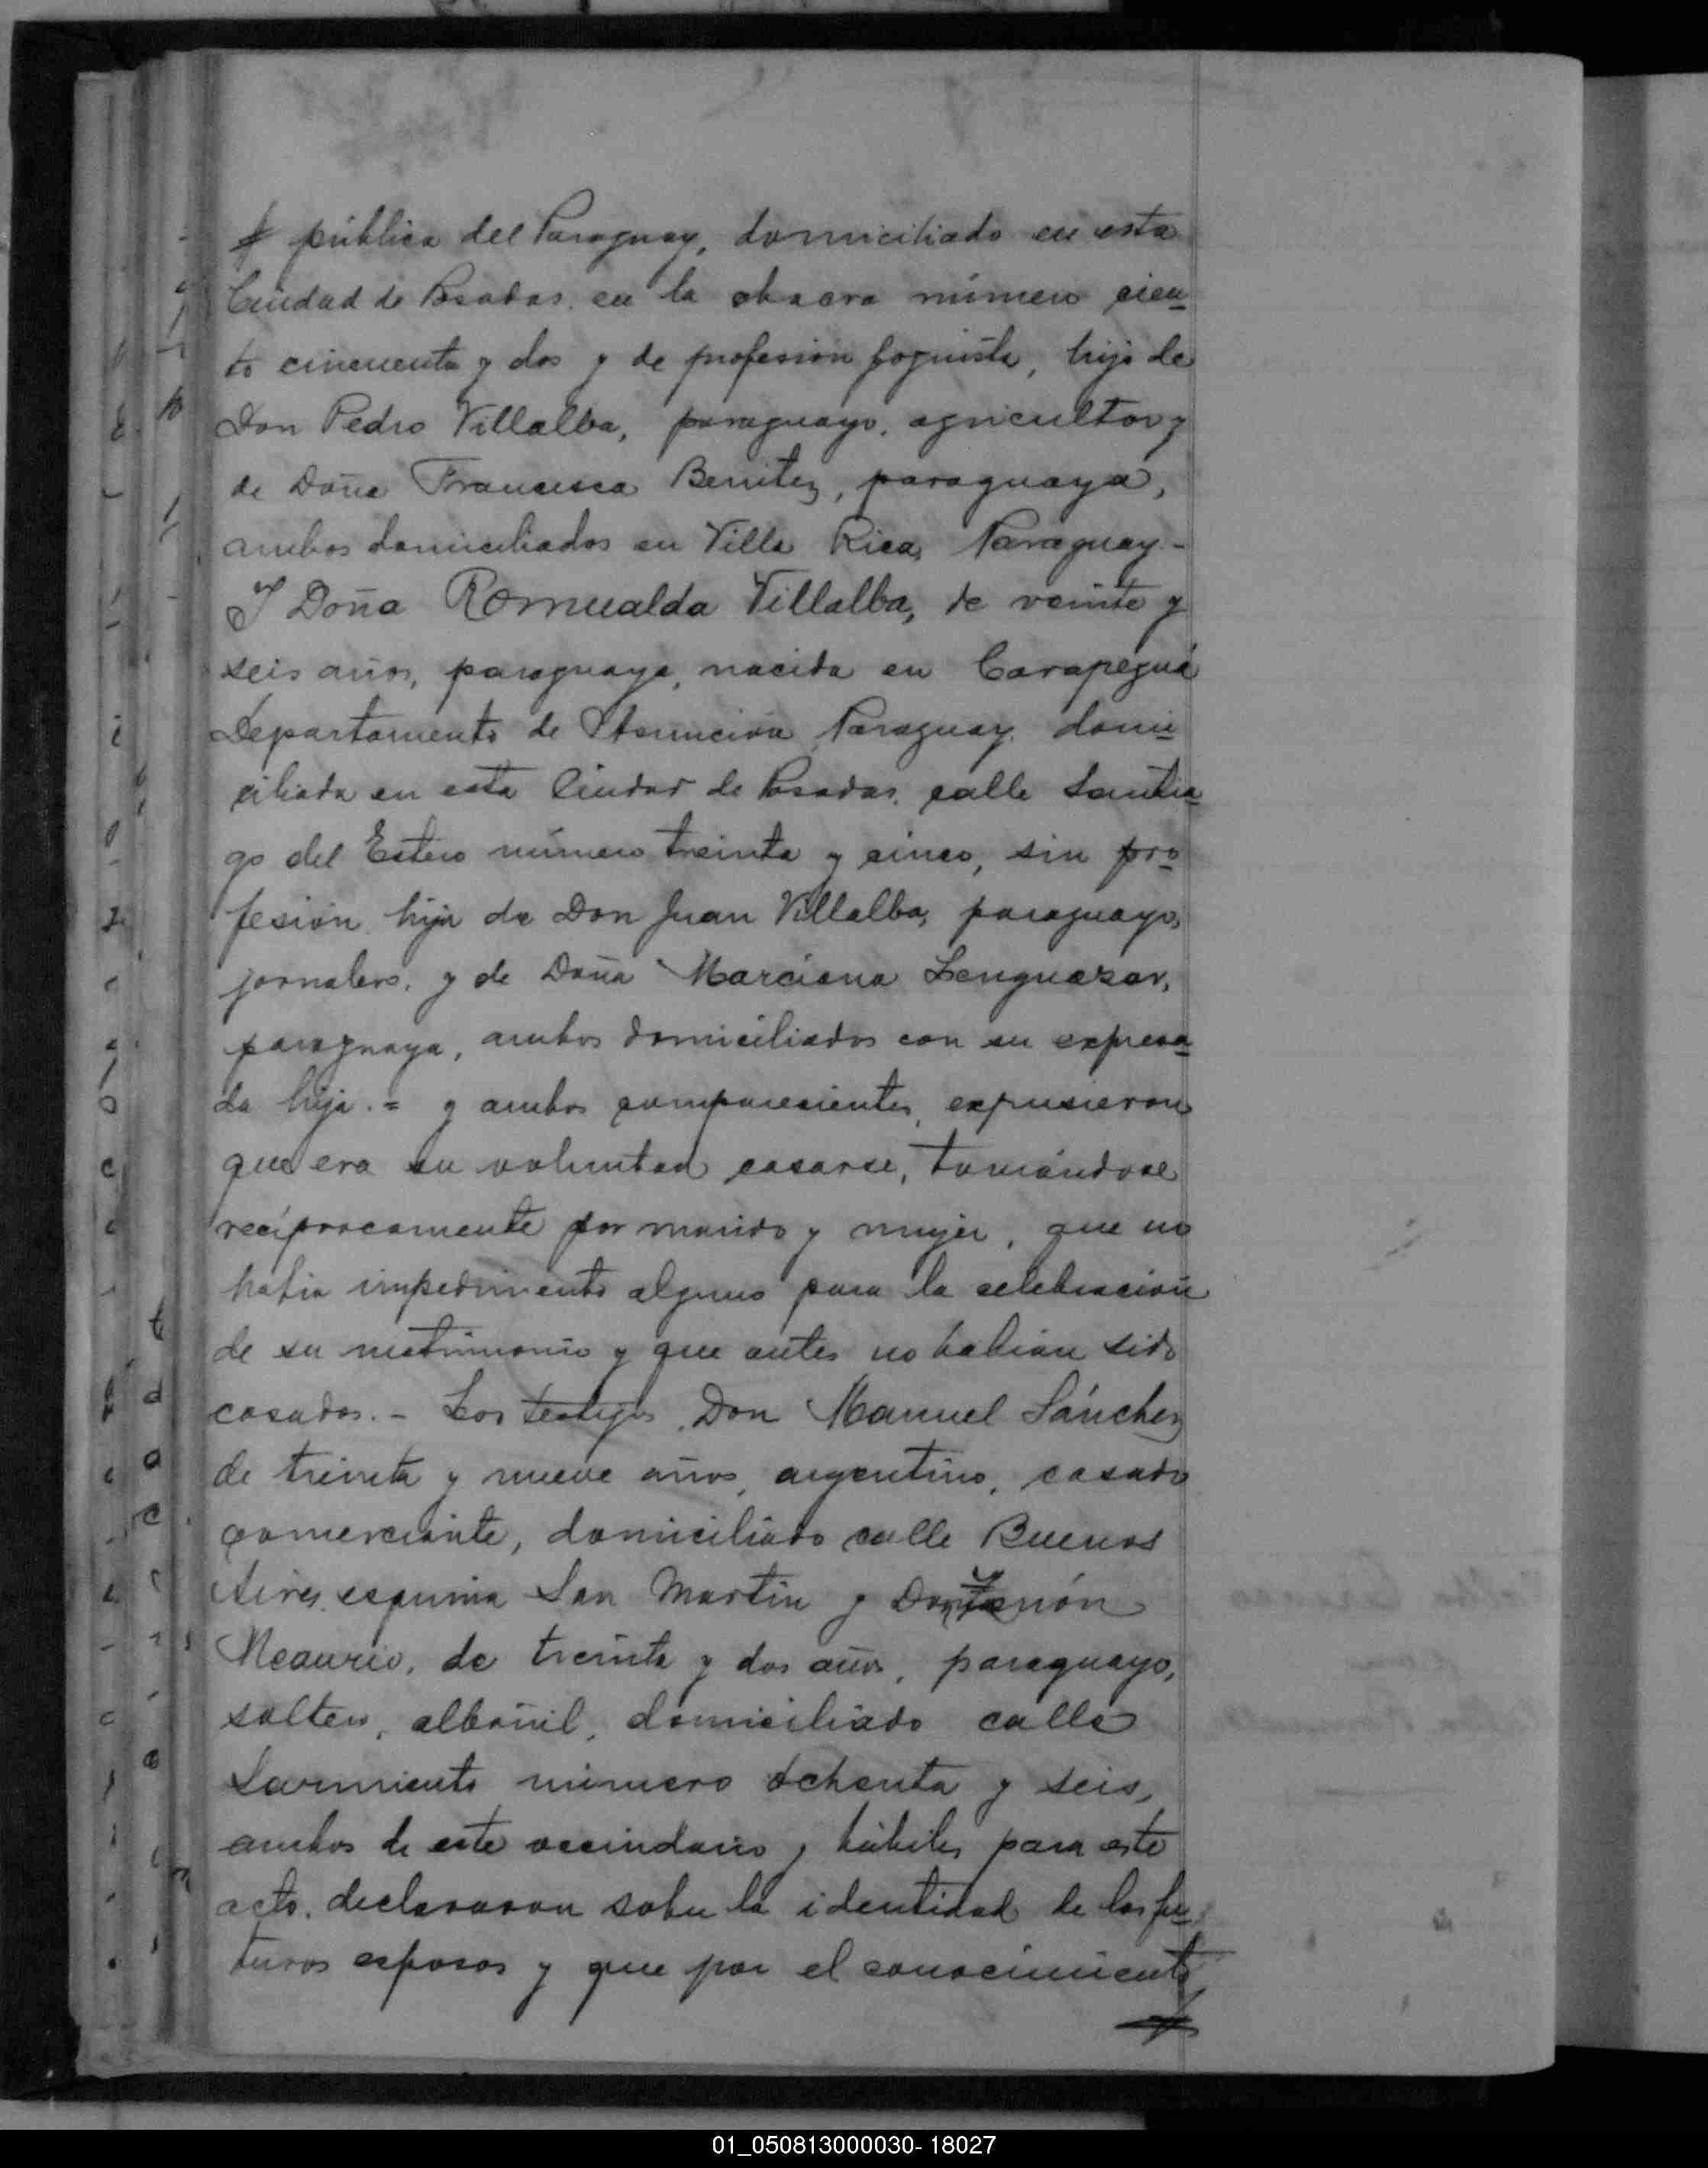 pública del Paraguay, domiciliado en esta
Ciudad de Posadas, en la chacra número cien-
to cincuenta y dos y de profesión foguista, hijo de
Don Pedro Villalba, paraguayo, agricultor y
de Doña Francisca Benitez, paraguaya,
ambos domiciliados en Villa Rica, Paraguay.-
Y Doña Romualda Villalba, de veinte y
seis años, paraguaya, nacida en Carapeguá
Departamento de Asunción Paraguay, domi-
ciliada en esta Ciudad de Posadas, calle Santia-
go del Estero número treinta y cinco, sin pro-
fesión, hija de Don Juan Villalba, paraguayo,
jornalero, y de Doña Marciana Lenguasar,
paraguaya, ambos domiciliados con su expresa-
da hija.= y ambos comparecientes, expusieron
que era su voluntad casarse, tomándose
recíprocamente por marido y mujer, que no
habia impedimento alguno para la celebración
de su matrimonio y que antes no habian sido
casados.- Los testigos, Don Manuel Sánchez
de treinta y nueve años, argentino, casado
comerciante, domiciliado calle Buenos
Aires esquina San Martin y Don
Meaurio, de treinta y dos años, paraguayo,
soltero, albañil, domiciliado calle
Sarmiento número ochenta y seis,
ambos de este vecindario y hábiles para este
acto, declararon sobre la identidad de los fu-
turos esposos y que por el conocimiento
01_050813000030- 18027